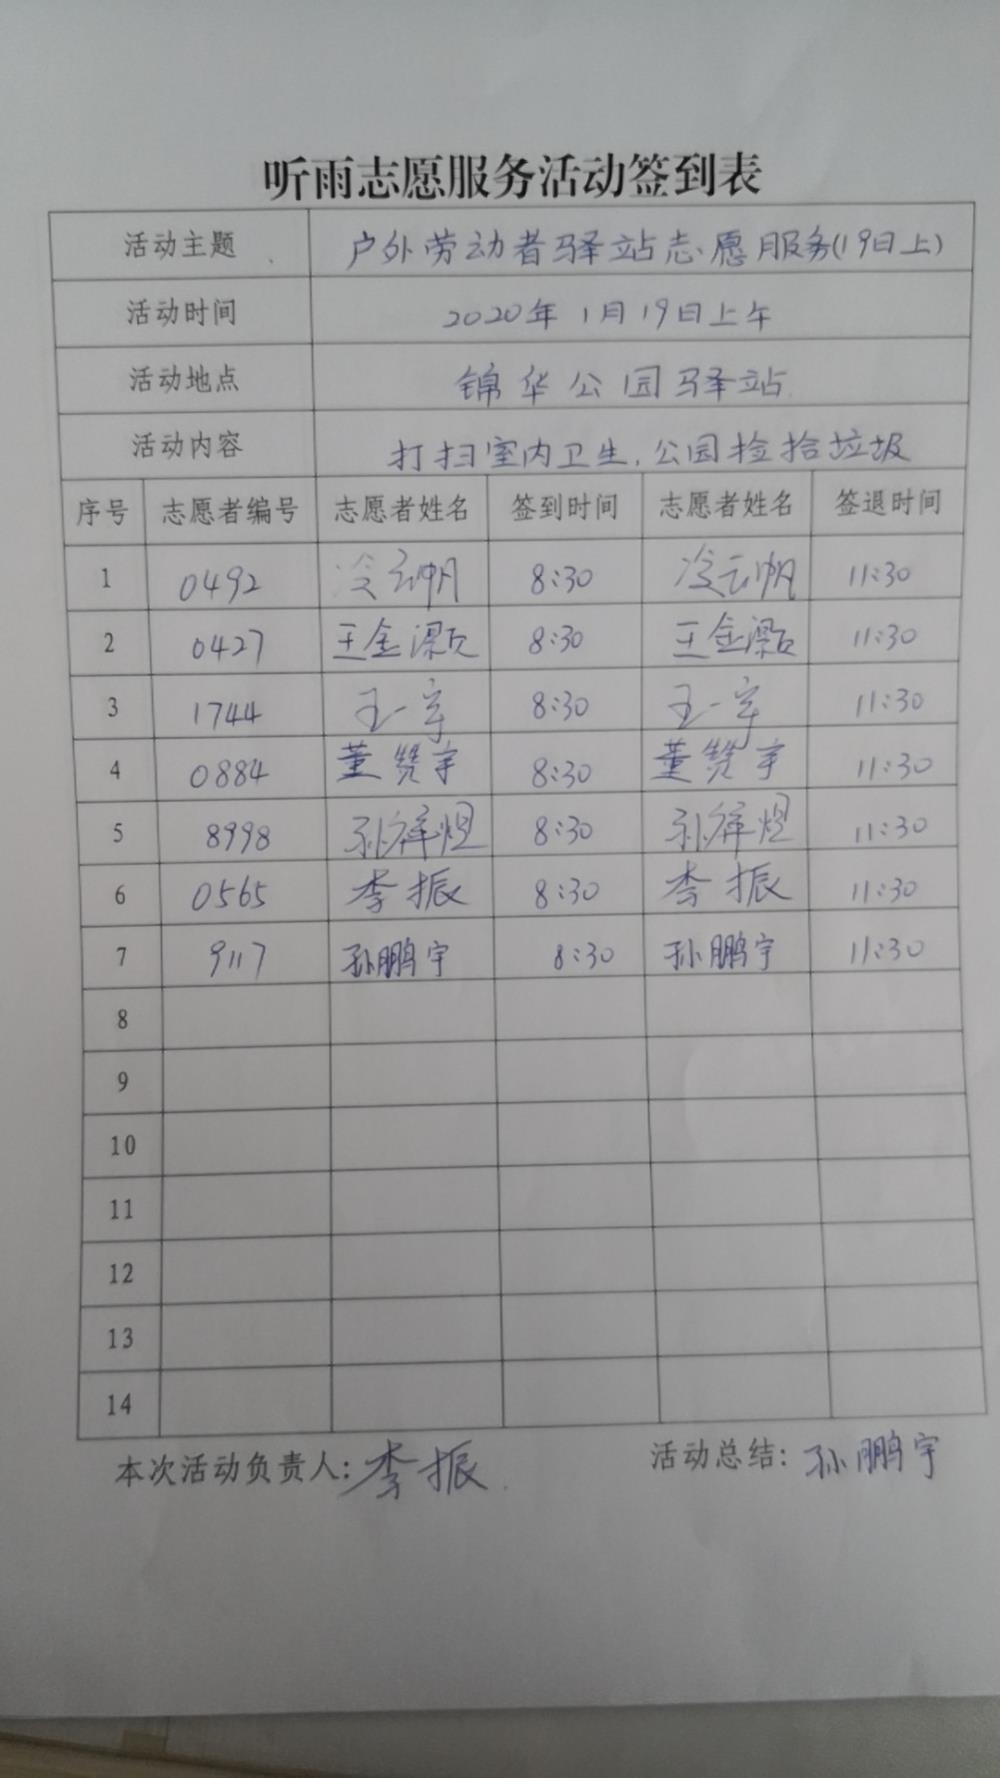 听雨志愿服务活动签到表
活动主题 户外劳动者驿站志愿服务(19日上)
活动时间 2020年1月19日上午
活动地点 锦华公园驿站
活动内容 打扫室内卫生,公园捡拾垃圾
序号 志愿者编号 志愿者姓名 签到时间 志愿者姓名 签退时间
1 0492 冷云帆 8:30 冷云帆 11:30
2 0427 王金灏 8:30 王金灏 11:30
3 1744 王一宇 8:30 王一宇 11:30
4 0884 董赞宇 8:30 董赞宇 11:30
5 8998 孙祥煜 8:30 孙祥煜 11:30
6 0565 李振 8:30 李振 11:30
7 9117 孙鹏宇 8:30 孙鹏宇 11:30
8
9
10
11
12
13
14
本次活动负责人:李振 活动总结:孙鹏宇